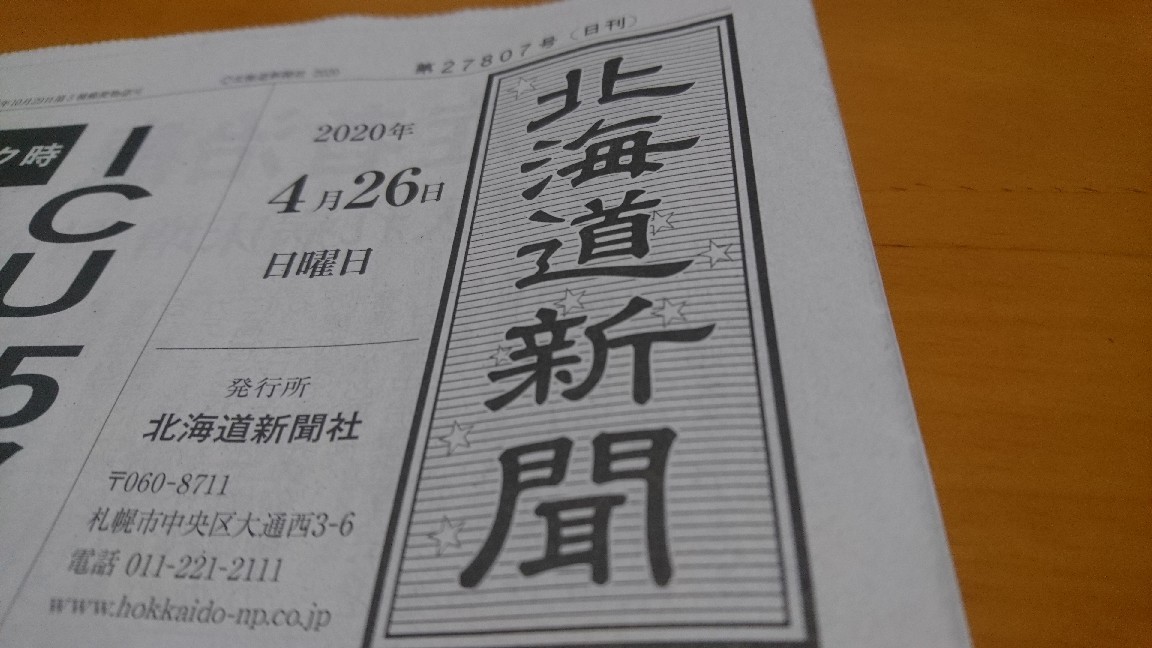 第27807号（日刊）
北海道新聞
2020年
4月26日
日曜日
発行所
北海道新聞社
〒060-8711
札幌市中央区大通西3-6
電話 011-221-2111
www.hokkaido-np.co.jp
ク時
ICU5